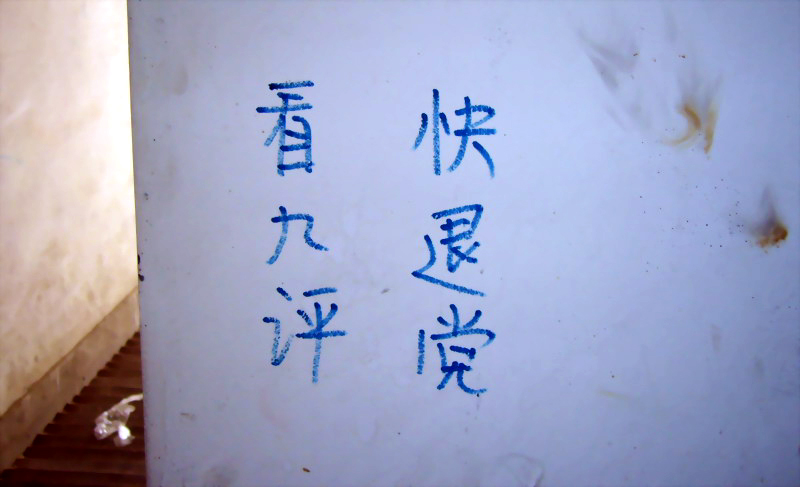 快退党
看九评